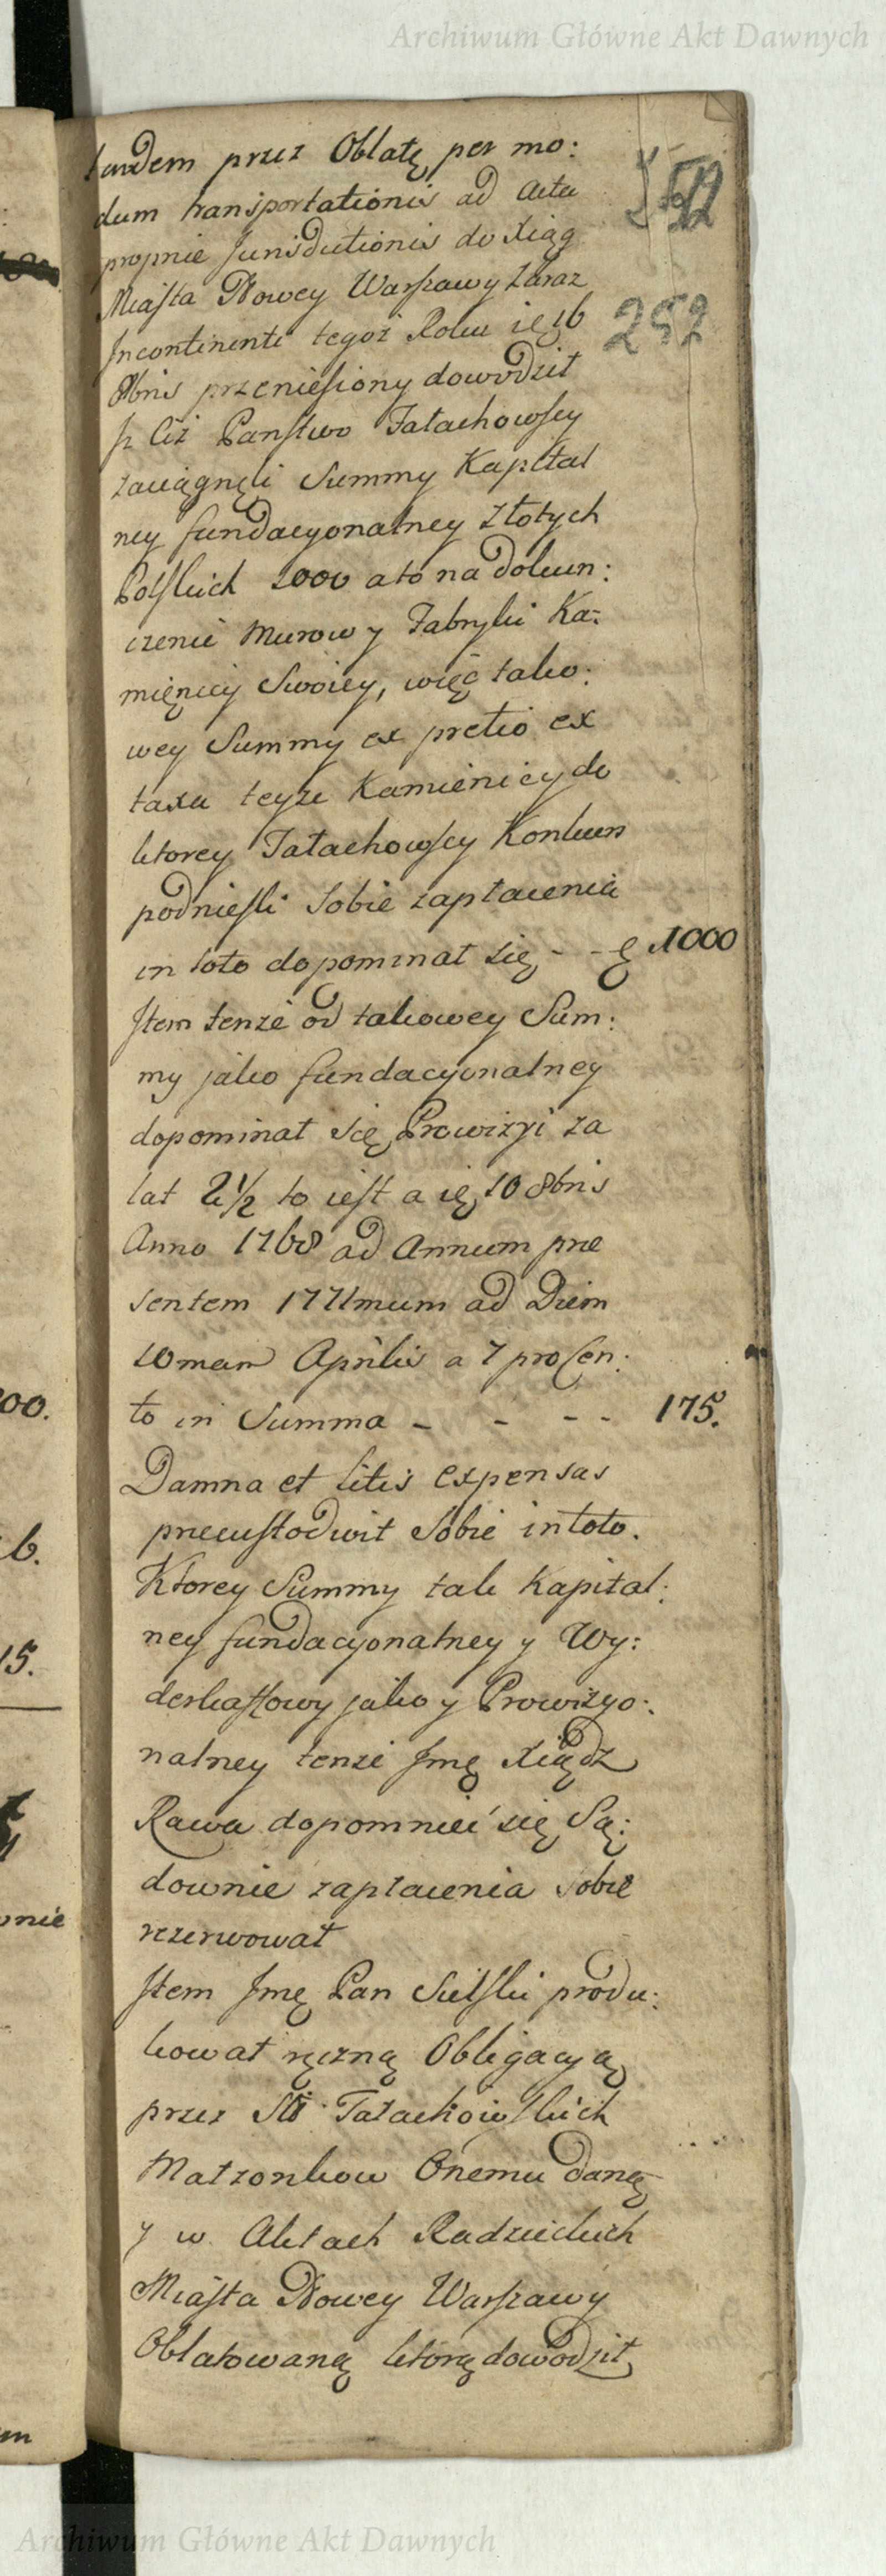 Archiwum Główne Akt Dawnych
tandem przez Oblatę per mo:
dum transportationis ad Acta
propriae Jurisdictionis do Xiąg
Miasta Nowey Warszawy zaraz
Incontinenti tegoż Roku ię 16
8bris przeniesiony dowodził
iż Ciż Państwo Tałachowscy
zaciągnęli Summy Kapital
ney fundacyonalney Złotych
Polskich 1000 a to na dokun:
czenie Murow y Fabryki Ka:
mięnicy Swoiey, więc tako:
wey Summy ex pretio ex
taxa teyże Kamienicy do
ktorey Tałachowscy Konkurs
podnieśli Sobie zapłacenia
in toto dopominał się - - 1000
Item tenże od takowey Sum:
my jako fundacyonalney
dopominał się Prowizyi za
lat 2½ to iest a ię 10 8bris
Anno 1768 ad Annum prae
sentem 1771mum ad Diem
10mam Aprilis a 7 pro Cen:
to in Summa - - - - 175.
Damna et litis expensas
praecustodwit Sobie in toto.
Ktorey Summy tak Kapital:
ney fundacyonalney y Wy:
derkaffowy jako y Prowizyo:
nalney tenże Jmę Xiądz
Rawa dopomnieć się Są:
downie zapłacenia Sobie
rezerwował
Item Jmę Pan Sielski produ:
kował ręczną Obligacyą
przez Tałachowskich
Małżonkow Onemu daną
y w Aktach Radzieckich
Miasta Nowey Warszawy
Oblatowaną ktorą dowodził
252
00.
6.
15.
wnie
m
Archiwum Główne Akt Dawnych